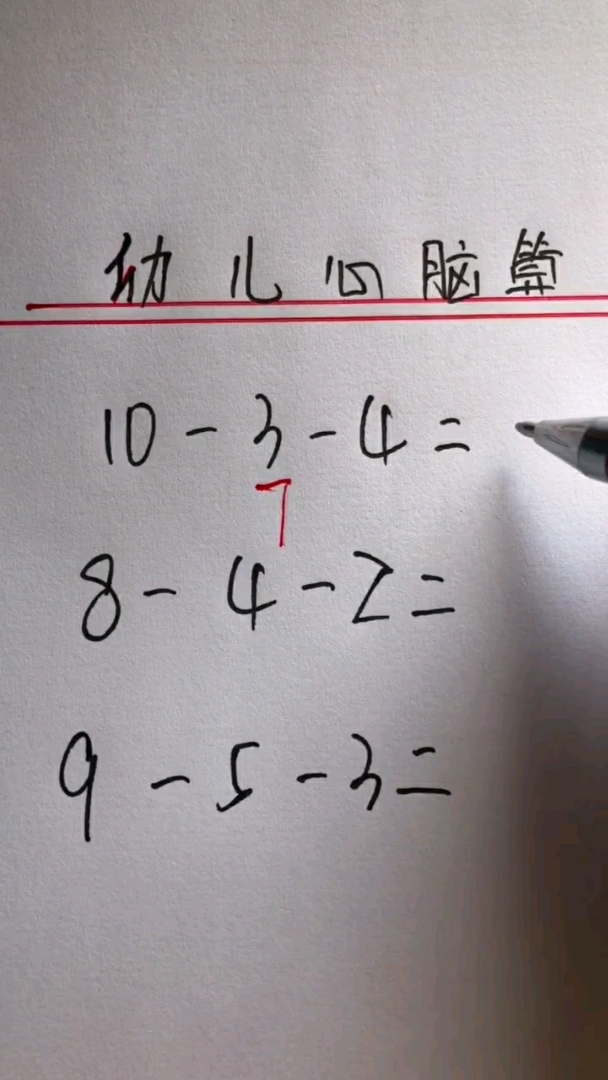 幼儿心脑算
10-3-4=
7
8-4-2=
9-5-3=